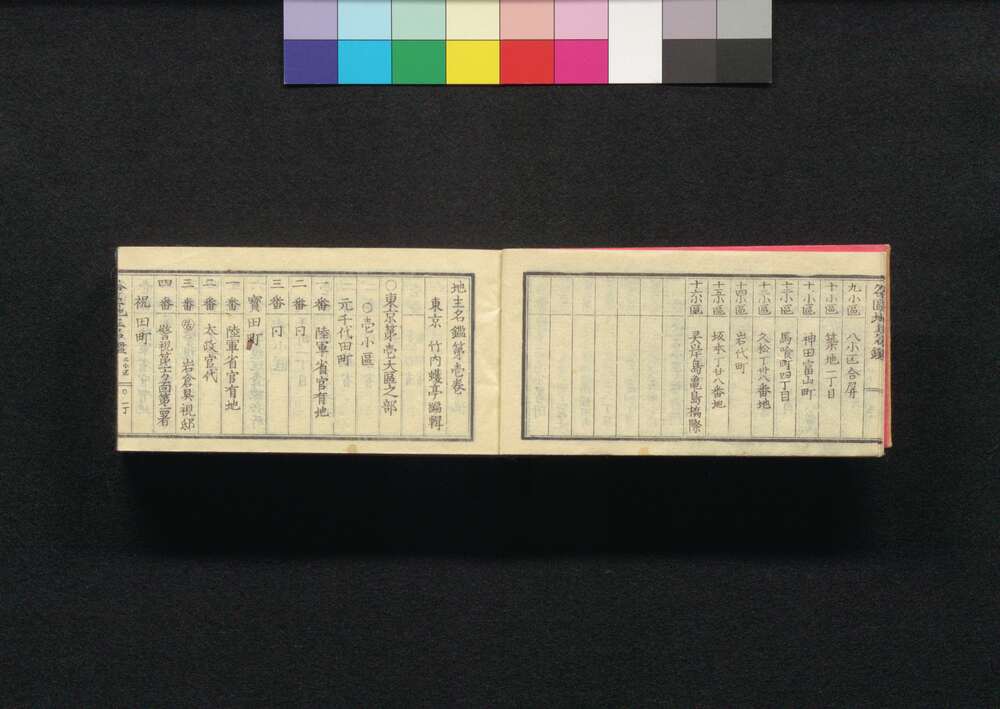 九小區 八小区合併
十小區 築地一丁目
十一小區 神田富山町
十二小區 馬喰町四丁目
十三小區 久松丁廿八番地
十四小區 岩代町
十五小區 坂本丁廿八番地
十六小區 灵岸島亀島橋際
地主名鑑第壱巻
東京 竹内蠖亭編輯
〇東京第壱大區之部
〇壱小區
元千代田町
一番 陸軍省官有地
二番 同
三番 同
寳田町
一番 陸軍省官有地
二番 太政官代
三番 岩倉具視邸
四番 警視第 方面第一署
祝田町